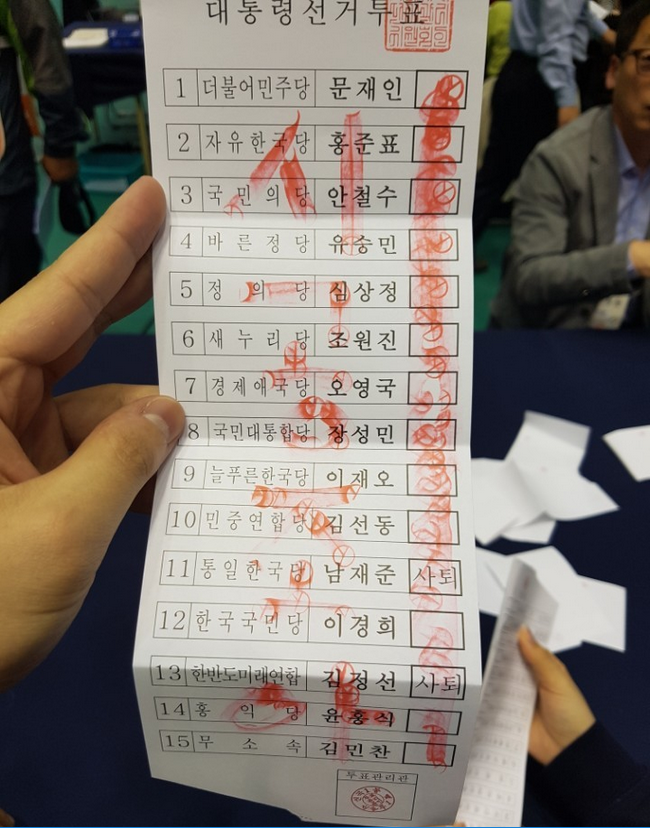 대통령선거투표
1 더불어민주당 문재인
2 자유한국당 홍준표
3 국민의당 안철수
4 바른정당 유승민
5 정의당 심상정
6 새누리당 조원진
7 경제애국당 오영국
8 국민대통합당 장성민
9 늘푸른한국당 이재오
10 민중연합당 김선동
11 통일한국당 남재준 사퇴
12 한국국민당 이경희
13 한반도미래연합 김정선 사퇴
14 홍익당 윤홍식
15 무소속 김민찬
투표관리관